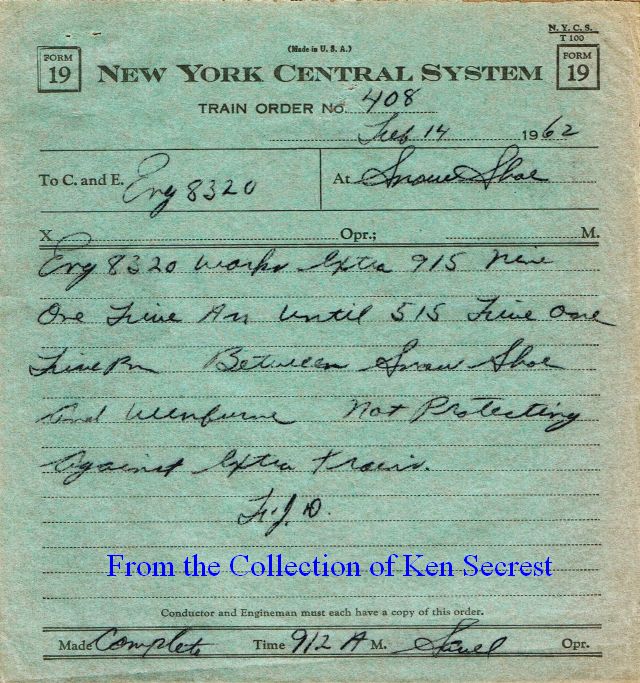 N. Y. C. S.
T 100
(Made in U. S. A.)
FORM 19
NEW YORK CENTRAL SYSTEM
FORM 19
TRAIN ORDER No. 408
Feb 14 1962
To C. and E. Eng 8320 At Snow Shoe
X Opr.; M.
Eng 8320 works Extra 915 Nine
One Five Am Until 515 Five One
Five Pm Between Snow Shoe
And Winburne Not Protecting
Against Extra Trains.
F.J.D.
From the Collection of Ken Secrest
Conductor and Engineman must each have a copy of this order.
Made Complete Time 912 A M. Opr.